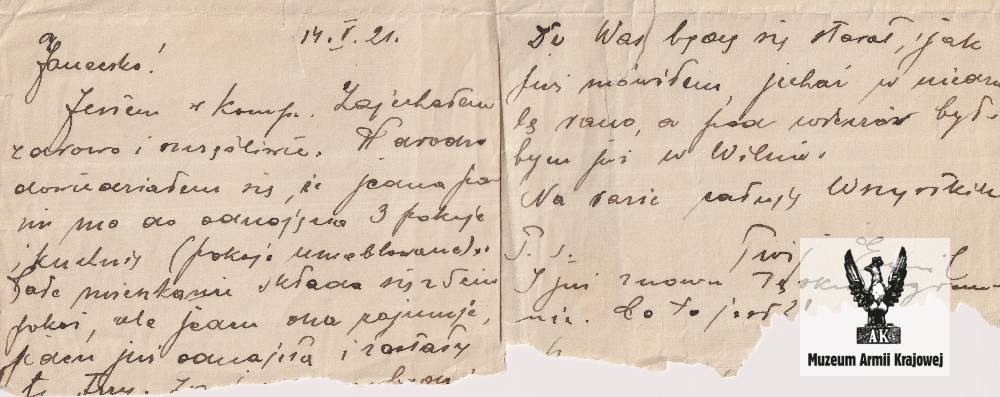 14.V.21.
Janeczko!
Jestem w komp. Zajechałem
zdrowo i szczęśliwie. W
dowiedziałem się, że jedna pa-
ni ma do odnajęcia 3 pokoje
i kuchnię (pokoje umeblowane).
Całe mieszkanie składa się z
pokoi, ale jeden ona zajmuje,
jeden już odnajęła i zostały
trzy.
Do Was będę się starał, jak
już mówiłem, jechać w niedzie-
lę rano, a pod wieczór był-
bym już w Wilnie.
Na razie całuję Wszystkich
Twój
P. S.
I już znowu
nie. Co to jest?
AK
Muzeum Armii Krajowej